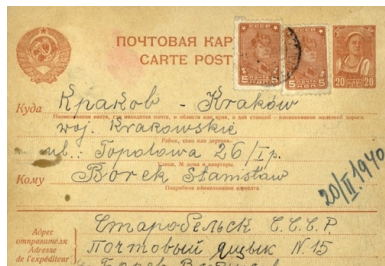 ПОЧТОВАЯ КАР
CARTE POST
СССР
5 5
5 5
20 20
Куда Краков - Kraków
woj. Krakowskie
ul.: Topolowa 26/I p.
Кому Borek Stanisław
20/II. 1940
Адрес
отправителя
Adresse
de l'expéditeur
Старобельск С.С.С.Р.
Почтовый ящык N. 15